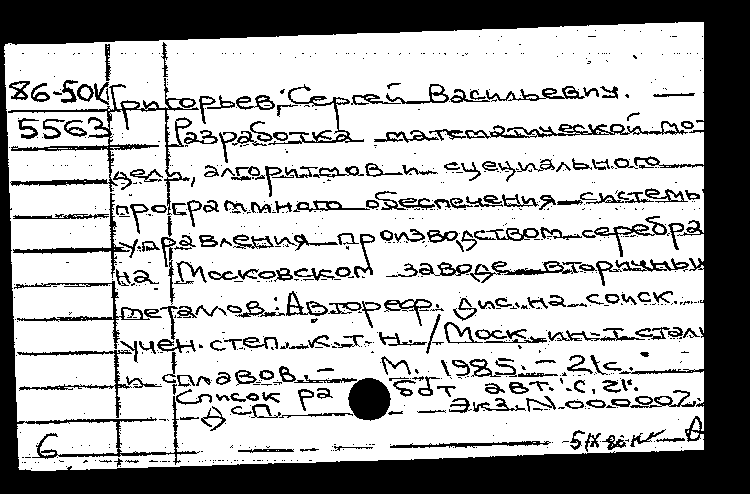 86-50К Григорьев, Сергей Васильевич. —
5563 Разработка математической мо-
дели, алгоритмов и специального
программного обеспечения системы
управления производством серебра
на Московском заводе вторичных
металлов: Автореф. дис. на соиск.
учен. степ. к.т.н. / Моск. ин-т стали
и сплавов. – М. 1985. – 21с.
Список ра бот авт.: с. 21.
ДСП. Экз. N 000007.
6